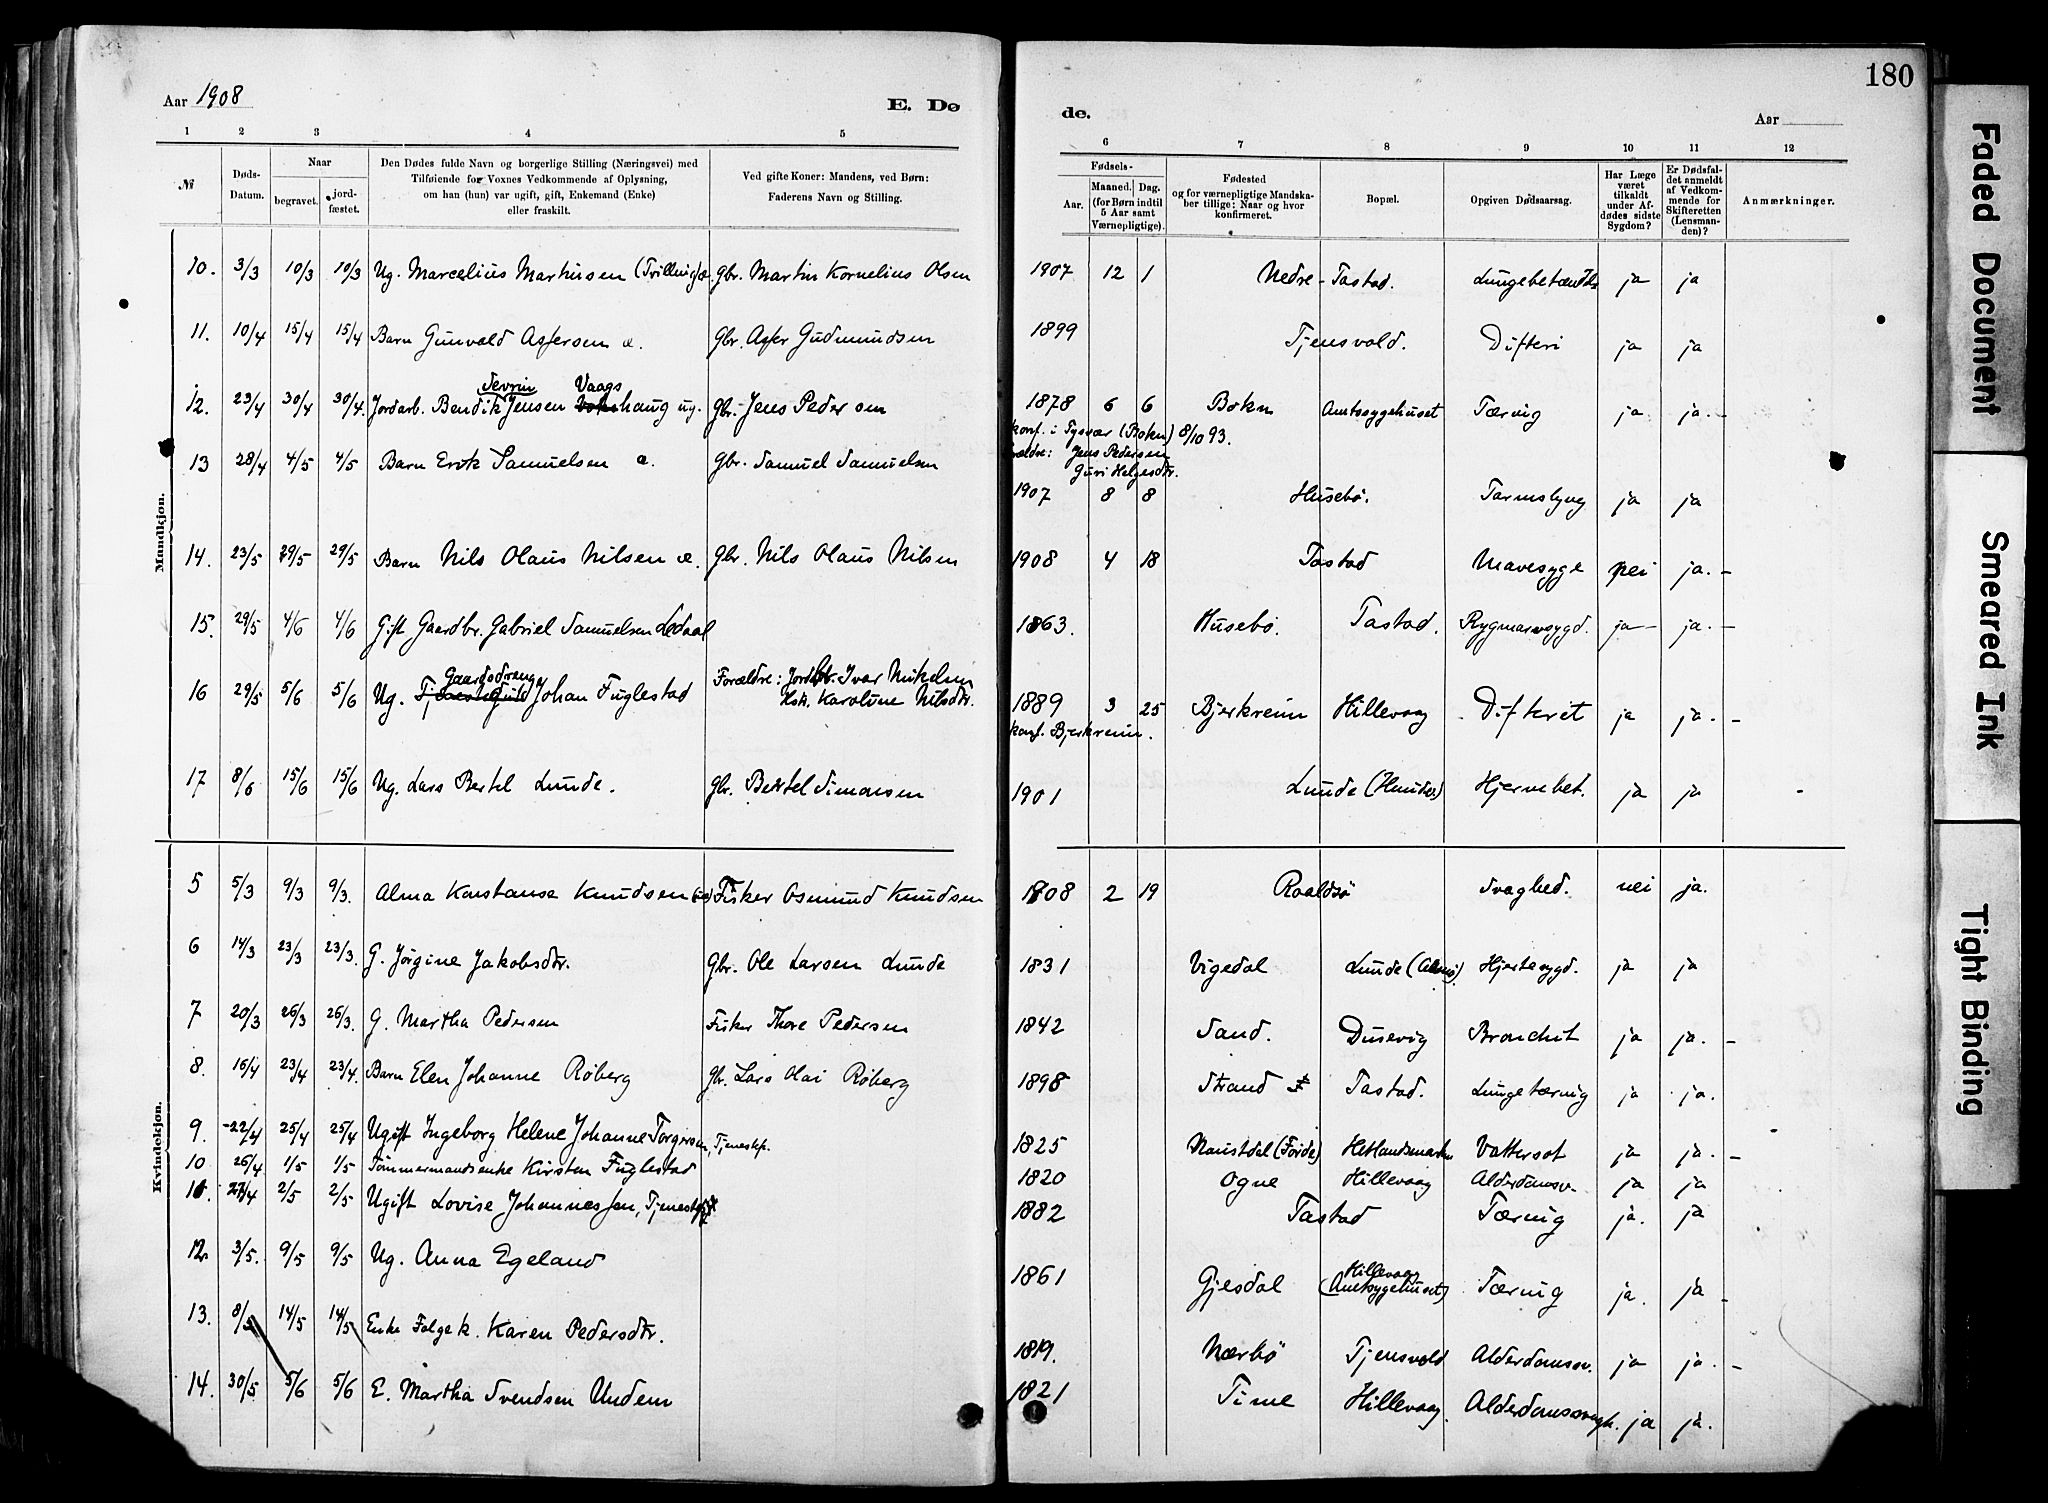 180
Aar 1908
E. Dø
de.
Aar
1 2 3 4 5 6 7 8 9 10 11 12
№
Døds-
Datum.
Naar
begravet.
jord-
fæstet.
Den Dødes fulde Navn og borgerlige Stilling (Næringsvei) med
Tilføiende for Voxnes Vedkommende af Oplysning,
om han (hun) var ugift, gift, Enkemand (Enke)
eller fraskilt.
Ved gifte Koner: Mandens, ved Børn:
Faderens Navn og Stilling.
Fødsels-
Aar.
Maaned. Dag.
(for Børn indtil
5 Aar samt
Værnepligtige).
Fødested
og for værnepligtige Mandska-
ber tillige: Naar og hvor
konfirmeret.
Bopæl.
Opgiven Dødsaarsag.
Har Læge
været
tilkaldt
under Af-
dødes sidste
Sygdom?
Er Dødsfal-
det anmeldt
af Vedkom-
mende for
Skifteretten
(Lensman-
den)?
Anmærkninger.
Mandkjøn.
10. 3/3 10/3 10/3 Ug. Marcelius Martinsen (Trilling) Gbr. Martin Kornelius Olsen 1907 12 1 Nedre-Tastad. ja ja
11. 10/4 15/4 15/4 Barn Gunvald Asfersen æ. Gbr. Asfer Gudmundsen 1899 Tjensvold. Difteri ja ja
Sevrin Vaags
12. 23/4 30/4 30/4. Jordarb. Bendik Jensen haug ug. Gbr. Jens Pedersen 1878 6 6 Bokn Amtssygehuset Tæring ja ja.-
konf. i Tysvær (Bokn) 8/10 93.
Jens Pedersen
Guri Helgesdtr.
13 28/4 4/5 4/5 Barn Erik Samuelsen æ. Gbr. Samuel Samuelsen 1907 8 8 Husebø. Tarmslyng ja ja
14. 23/5 29/5 29/5 Barn Nils Olaus Nilsen æ. Gbr. Nils Olaus Nilsen 1908 4 18 Tastad Mavesyge nei ja.-
15. 29/5 4/6 4/6 Gift Gaardbr. Gabriel Samuelsen Ledaal 1863. Husebø. Tastad. Rygmarvssygd. ja- ja.-
Gaardsdreng Forældre: Jordbr. Ivar Mikelsen
16 29/5 5/6 5/6 Ug. Johan Fuglestad Hsk. Karoline Nilsdtr. 1889 3 25 Bjerkreim Hillevaag Difterit ja ja.-
konf. Bjerkreim.
17 8/6 15/6 15/6 Ug. Lars Bertel Lunde. Gbr. Bertel Simonsen 1901 Lunde (Hundv.) Hjernebet. ja ja -
Kvindekjøn.
5 5/3 9/3 9/3. Alma Konstanse Knudsen Fisker Osmund Knudsen 1908 2 19 Roaldsø Svaghed. nei ja.
6 14/3 23/3 23/3. G. Jørgine Jakobsdtr. Gbr. Ole Larsen Lunde 1831 Vigedal Lunde Hjertesygd. ja ja
7 20/3 26/3 26/3. G. Martha Pedersen Fisker Thore Pedersen 1842 Sand. Dusevig Bronchit ja ja.-
8. 16/4 23/4 23/4. Barn Elen Johanne Røberg Gbr. Lars Olai Røberg 1898 Strand Tastad. Lungetæring ja ja.
9. 22/4 25/4 25/4 Ugift Ingeborg Helene Johanne Torgersen, Tjenestep. 1825 Naustdal (Førde) Hetlandsmarken Vattersot ja ja.-
10 26/4 1/5 1/5 Tømmermandsenke Kirsten Fuglestad 1820 Ogne Hillevaag Alderdomssv. ja ja
11. 27/4 2/5 2/5 Ugift Lovise Johannessen, 1882 Tastad Tæring ja. ja
12. 3/5. 9/5 9/5 Ug. Anna Egeland 1861 Gjesdal Hillevaag (Amtsygehuset) Tæring ja. ja -
13. 8/5 14/5 14/5 Enke Folgek. Karen Pedersdtr. 1819. Nærbø Tjensvold Alderdomssv. ja ja.-
14. 30/5 5/6 5/6 E. Martha Svendsen Undem 1821 Time Hillevaag Alderdomssvagh. ja ja.
Faded Document
Smeared Ink
Tight Binding